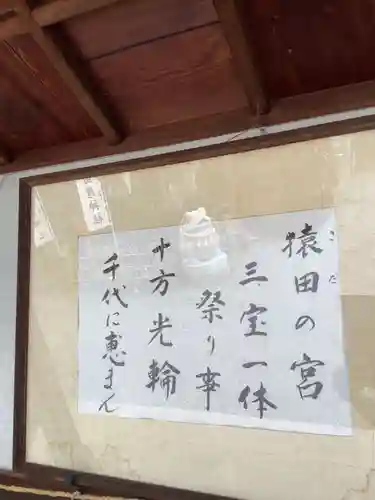 猿田の宮
さた
三宝一体
祭り幸
十方光輪
千代に恵まん